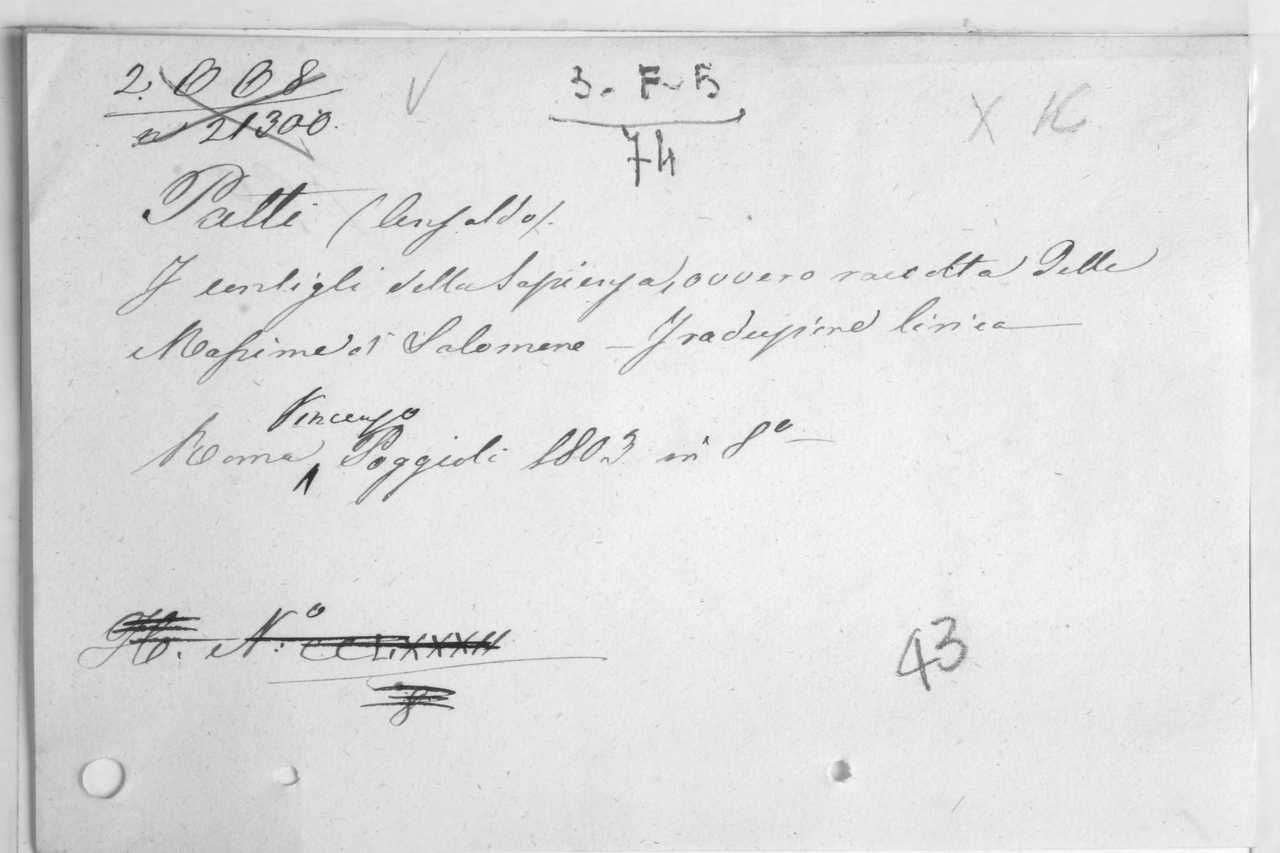 2. O O 8
n° 21300.
3-F-5
74
X K
Patti (Ansaldo).
I consigli della Sapienza, ovvero raccolta delle
Massime di Salomone - Traduzione lirica
Roma Vincenzo Poggioli 1803 in 8°
N.° CCLXXXII
8
43